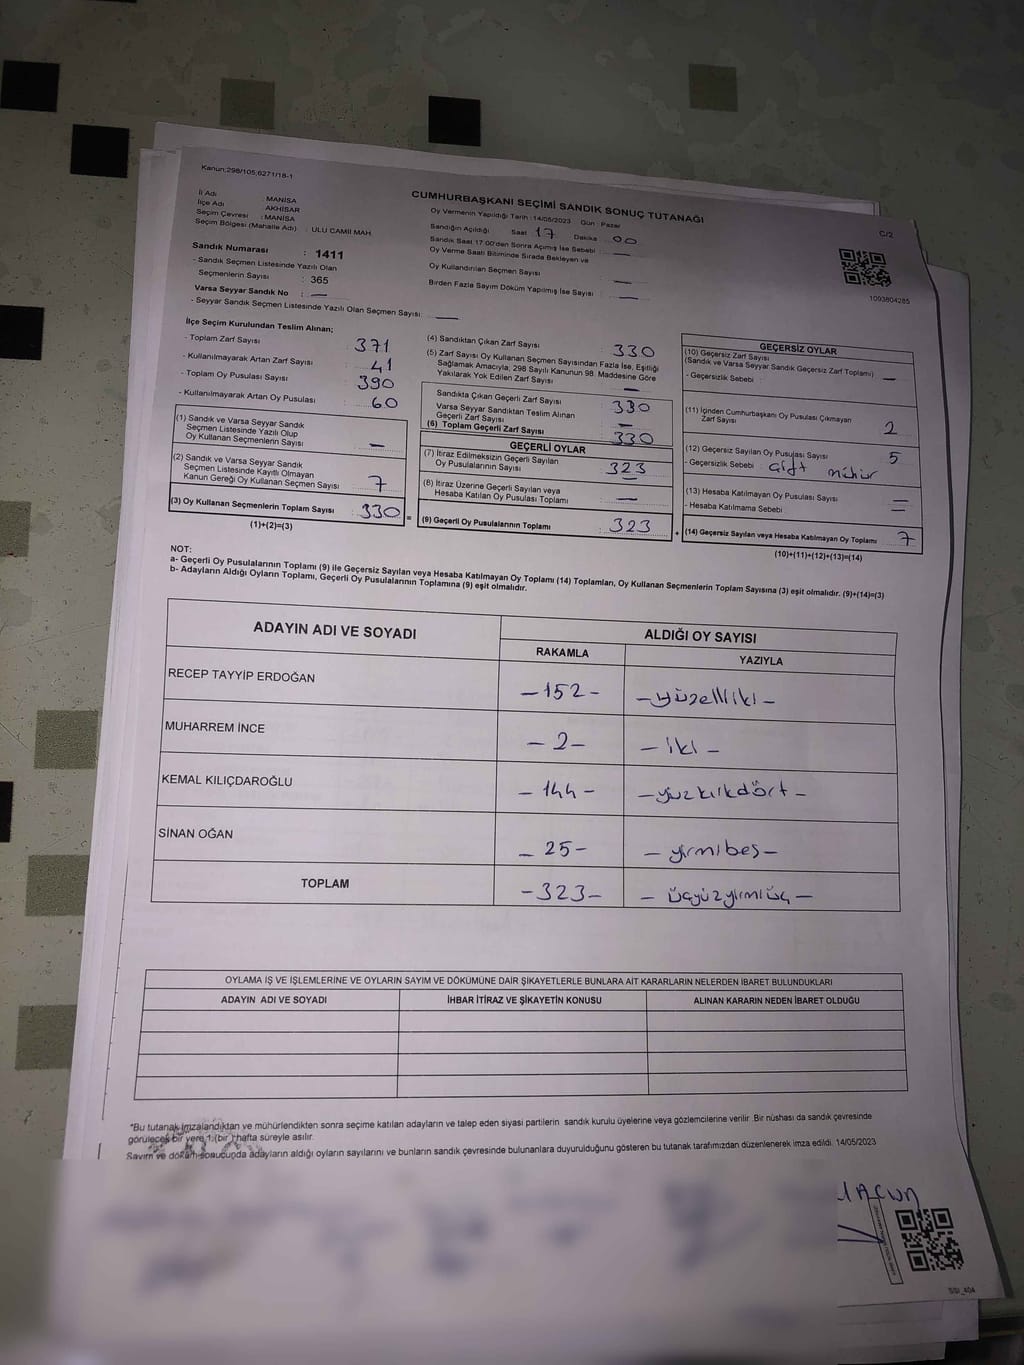 Kanun:298/105,6271/18-1
CUMHURBAŞKANI SEÇİMİ SANDIK SONUÇ TUTANAĞI
C/2
İl Adı MANİSA
İlçe Adı AKHİSAR
Seçim Çevresi : MANİSA
Seçim Bölgesi (Mahalle Adı) : ULU CAMİİ MAH.
Oy Vermenin Yapıldığı Tarih :14/05/2023 Gün : Pazar
Sandığın Açıldığı Saat 17 Dakika 00
Sandık Saat 17:00'den Sonra Açılmış İse Sebebi :
Oy Verme Saati Bitiminde Sırada Bekleyen ve
Oy Kullandırılan Seçmen Sayısı
Birden Fazla Sayım Döküm Yapılmış İse Sayısı :
1093804285
Sandık Numarası : 1411
- Sandık Seçmen Listesinde Yazılı Olan
Seçmenlerin Sayısı : 365
Varsa Seyyar Sandık No : —
- Seyyar Sandık Seçmen Listesinde Yazılı Olan Seçmen Sayısı : —
İlçe Seçim Kurulundan Teslim Alınan;
- Toplam Zarf Sayısı 371
- Kullanılmayarak Artan Zarf Sayısı 41
- Toplam Oy Pusulası Sayısı 390
- Kullanılmayarak Artan Oy Pusulası 60
(1) Sandık ve Varsa Seyyar Sandık
Seçmen Listesinde Yazılı Olup
Oy Kullanan Seçmenlerin Sayısı —
(2) Sandık ve Varsa Seyyar Sandık
Seçmen Listesinde Kayıtlı Olmayan
Kanun Gereği Oy Kullanan Seçmen Sayısı 7
(3) Oy Kullanan Seçmenlerin Toplam Sayısı 330 =
(1)+(2)=(3)
(4) Sandıktan Çıkan Zarf Sayısı : 330
(5) Zarf Sayısı Oy Kullanan Seçmen Sayısından Fazla İse, Eşitliği
Sağlamak Amacıyla, 298 Sayılı Kanunun 98. Maddesine Göre
Yakılarak Yok Edilen Zarf Sayısı —
Sandıkta Çıkan Geçerli Zarf Sayısı : 330
Varsa Seyyar Sandıktan Teslim Alınan
Geçerli Zarf Sayısı —
(6) Toplam Geçerli Zarf Sayısı 330
GEÇERLİ OYLAR
(7) İtiraz Edilmeksizin Geçerli Sayılan
Oy Pusulalarının Sayısı : 323
(8) İtiraz Üzerine Geçerli Sayılan veya
Hesaba Katılan Oy Pusulası Toplamı : —
(9) Geçerli Oy Pusulalarının Toplamı : 323 +
GEÇERSİZ OYLAR
(10) Geçersiz Zarf Sayısı
(Sandık ve Varsa Seyyar Sandık Geçersiz Zarf Toplamı) —
- Geçersizlik Sebebi :
(11) İçinden Cumhurbaşkanı Oy Pusulası Çıkmayan
Zarf Sayısı 2
(12) Geçersiz Sayılan Oy Pusulası Sayısı 5
- Geçersizlik Sebebi : çift mühür
(13) Hesaba Katılmayan Oy Pusulası Sayısı —
- Hesaba Katılmama Sebebi : —
(14) Geçersiz Sayılan veya Hesaba Katılmayan Oy Toplamı 7
(10)+(11)+(12)+(13)=(14)
NOT:
a- Geçerli Oy Pusulalarının Toplamı (9) ile Geçersiz Sayılan veya Hesaba Katılmayan Oy Toplamı (14) Toplamları, Oy Kullanan Seçmenlerin Toplam Sayısına (3) eşit olmalıdır. (9)+(14)=(3)
b- Adayların Aldığı Oyların Toplamı, Geçerli Oy Pusulalarının Toplamına (9) eşit olmalıdır.
ADAYIN ADI VE SOYADI ALDIĞI OY SAYISI
RAKAMLA YAZIYLA
RECEP TAYYİP ERDOĞAN -152- -yüzelliiki-
MUHARREM İNCE -2- -iki-
KEMAL KILIÇDAROĞLU -144- -yüzkırkdört-
SİNAN OĞAN -25- -yirmibeş-
TOPLAM -323- -üçyüzyirmiüç-
OYLAMA İŞ VE İŞLEMLERİNE VE OYLARIN SAYIM VE DÖKÜMÜNE DAİR ŞİKAYETLERLE BUNLARA AİT KARARLARIN NELERDEN İBARET BULUNDUKLARI
ADAYIN ADI VE SOYADI İHBAR İTİRAZ VE ŞİKAYETİN KONUSU ALINAN KARARIN NEDEN İBARET OLDUĞU
*Bu tutanak imzalandıktan ve mühürlendikten sonra seçime katılan adayların ve talep eden siyasi partilerin sandık kurulu üyelerine veya gözlemcilerine verilir. Bir nüshası da sandık çevresinde
görülecek bir yere 1 (bir) hafta süreyle asılır.
Sayım ve döküm sonucunda adayların aldığı oyların sayılarını ve bunların sandık çevresinde bulunanlara duyurulduğunu gösteren bu tutanak tarafımızdan düzenlenerek imza edildi. 14/05/2023
SSI_404